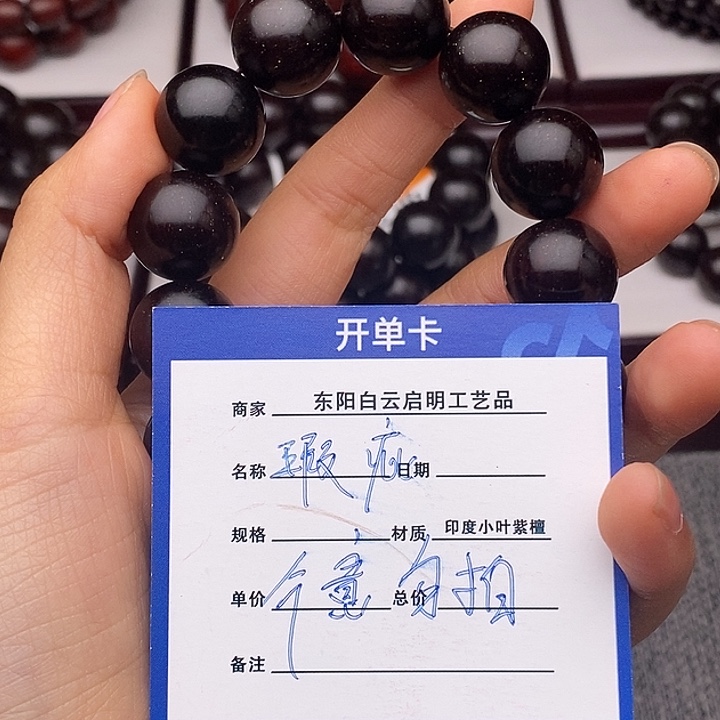 开单卡
商家 东阳白云启明工艺品
名称 瑕疵 日期
规格 材质 印度小叶紫檀
单价 介意勿拍 总价
备注